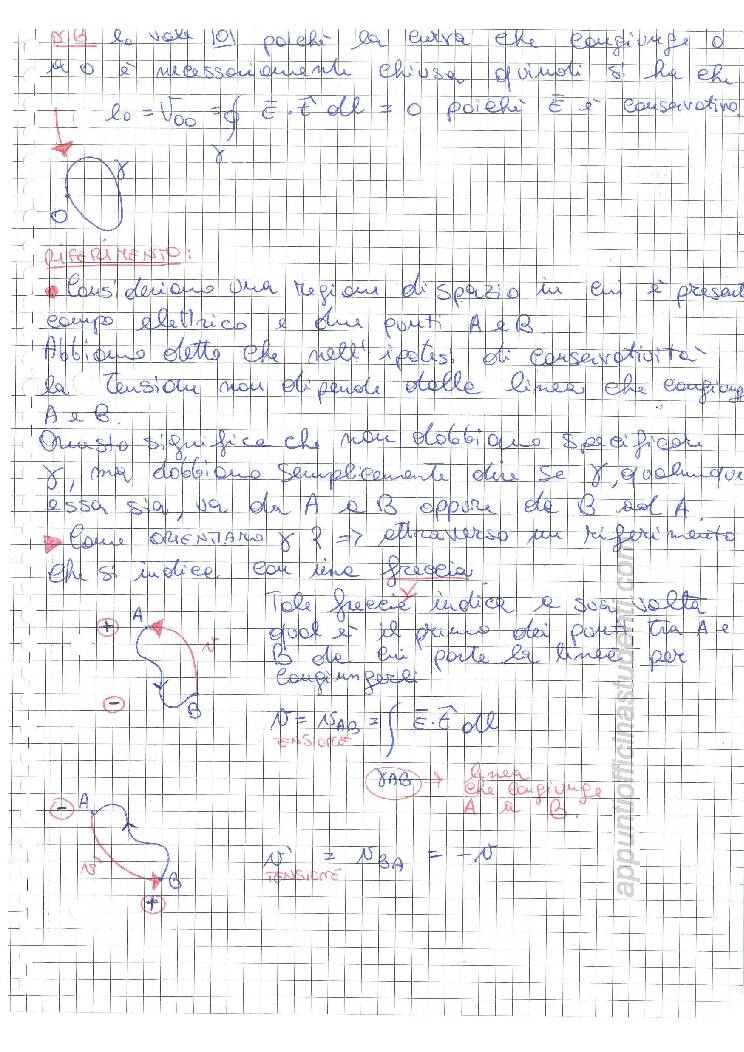 N.B. l₀ vale |0| poichè la curva che congiunge O
a O è necessariamente chiusa quindi si ha che
l₀ = V₀₀ = ∮ Ē · t̂ dl = 0 poichè Ē è conservativo
γ
γ
O
RIFERIMENTO:
• Consideriamo una regione di spazio in cui è present
campo elettrico e due punti A e B
Abbiamo detto che nell'ipotesi di conservatività
la tensione non dipende dalla linea che congiung
A e B.
Questo significa che non dobbiamo specificare
γ, ma dobbiamo semplicemente dire se γ, qualunque
essa sia, va da A a B oppure da B ad A.
▶ Come ORIENTIAMO γ ? => attraverso un riferimento
che si indica con una freccia.
Tale freccia indica a sua volta
qual è il primo dei punti tra A e
B da cui parte la linea per
congiungerli
+ A
v
- B
v = v_AB = ∫ Ē · t̂ dl
TENSIONE
γAB → linea
che congiunge
A a B.
- A
v'
B
+
v' = v_BA = -v
TENSIONE
appuntiofficinastudenti.com